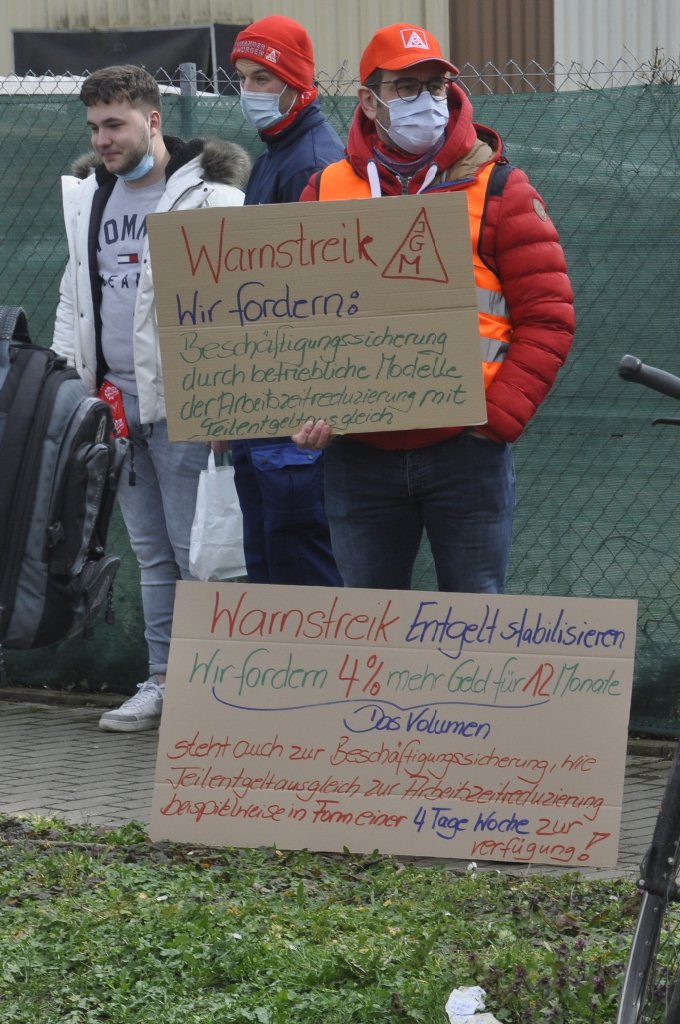 TOMM
JEAN
Warnstreik IGM
Wir fordern:
Beschäftigungssicherung
durch betriebliche Modelle
der Arbeitzeitreduzierung mit
Teilentgeltausgleich
Warnstreik Entgelt stabilisieren
Wir fordern 4% mehr Geld für 12 Monate
Das Volumen
steht auch zur Beschäftigungssicherung, wie
Teilentgeltausgleich zur Arbeitzeitreduzierung
beispielweise in Form einer 4 Tage Woche zur
verfügung!